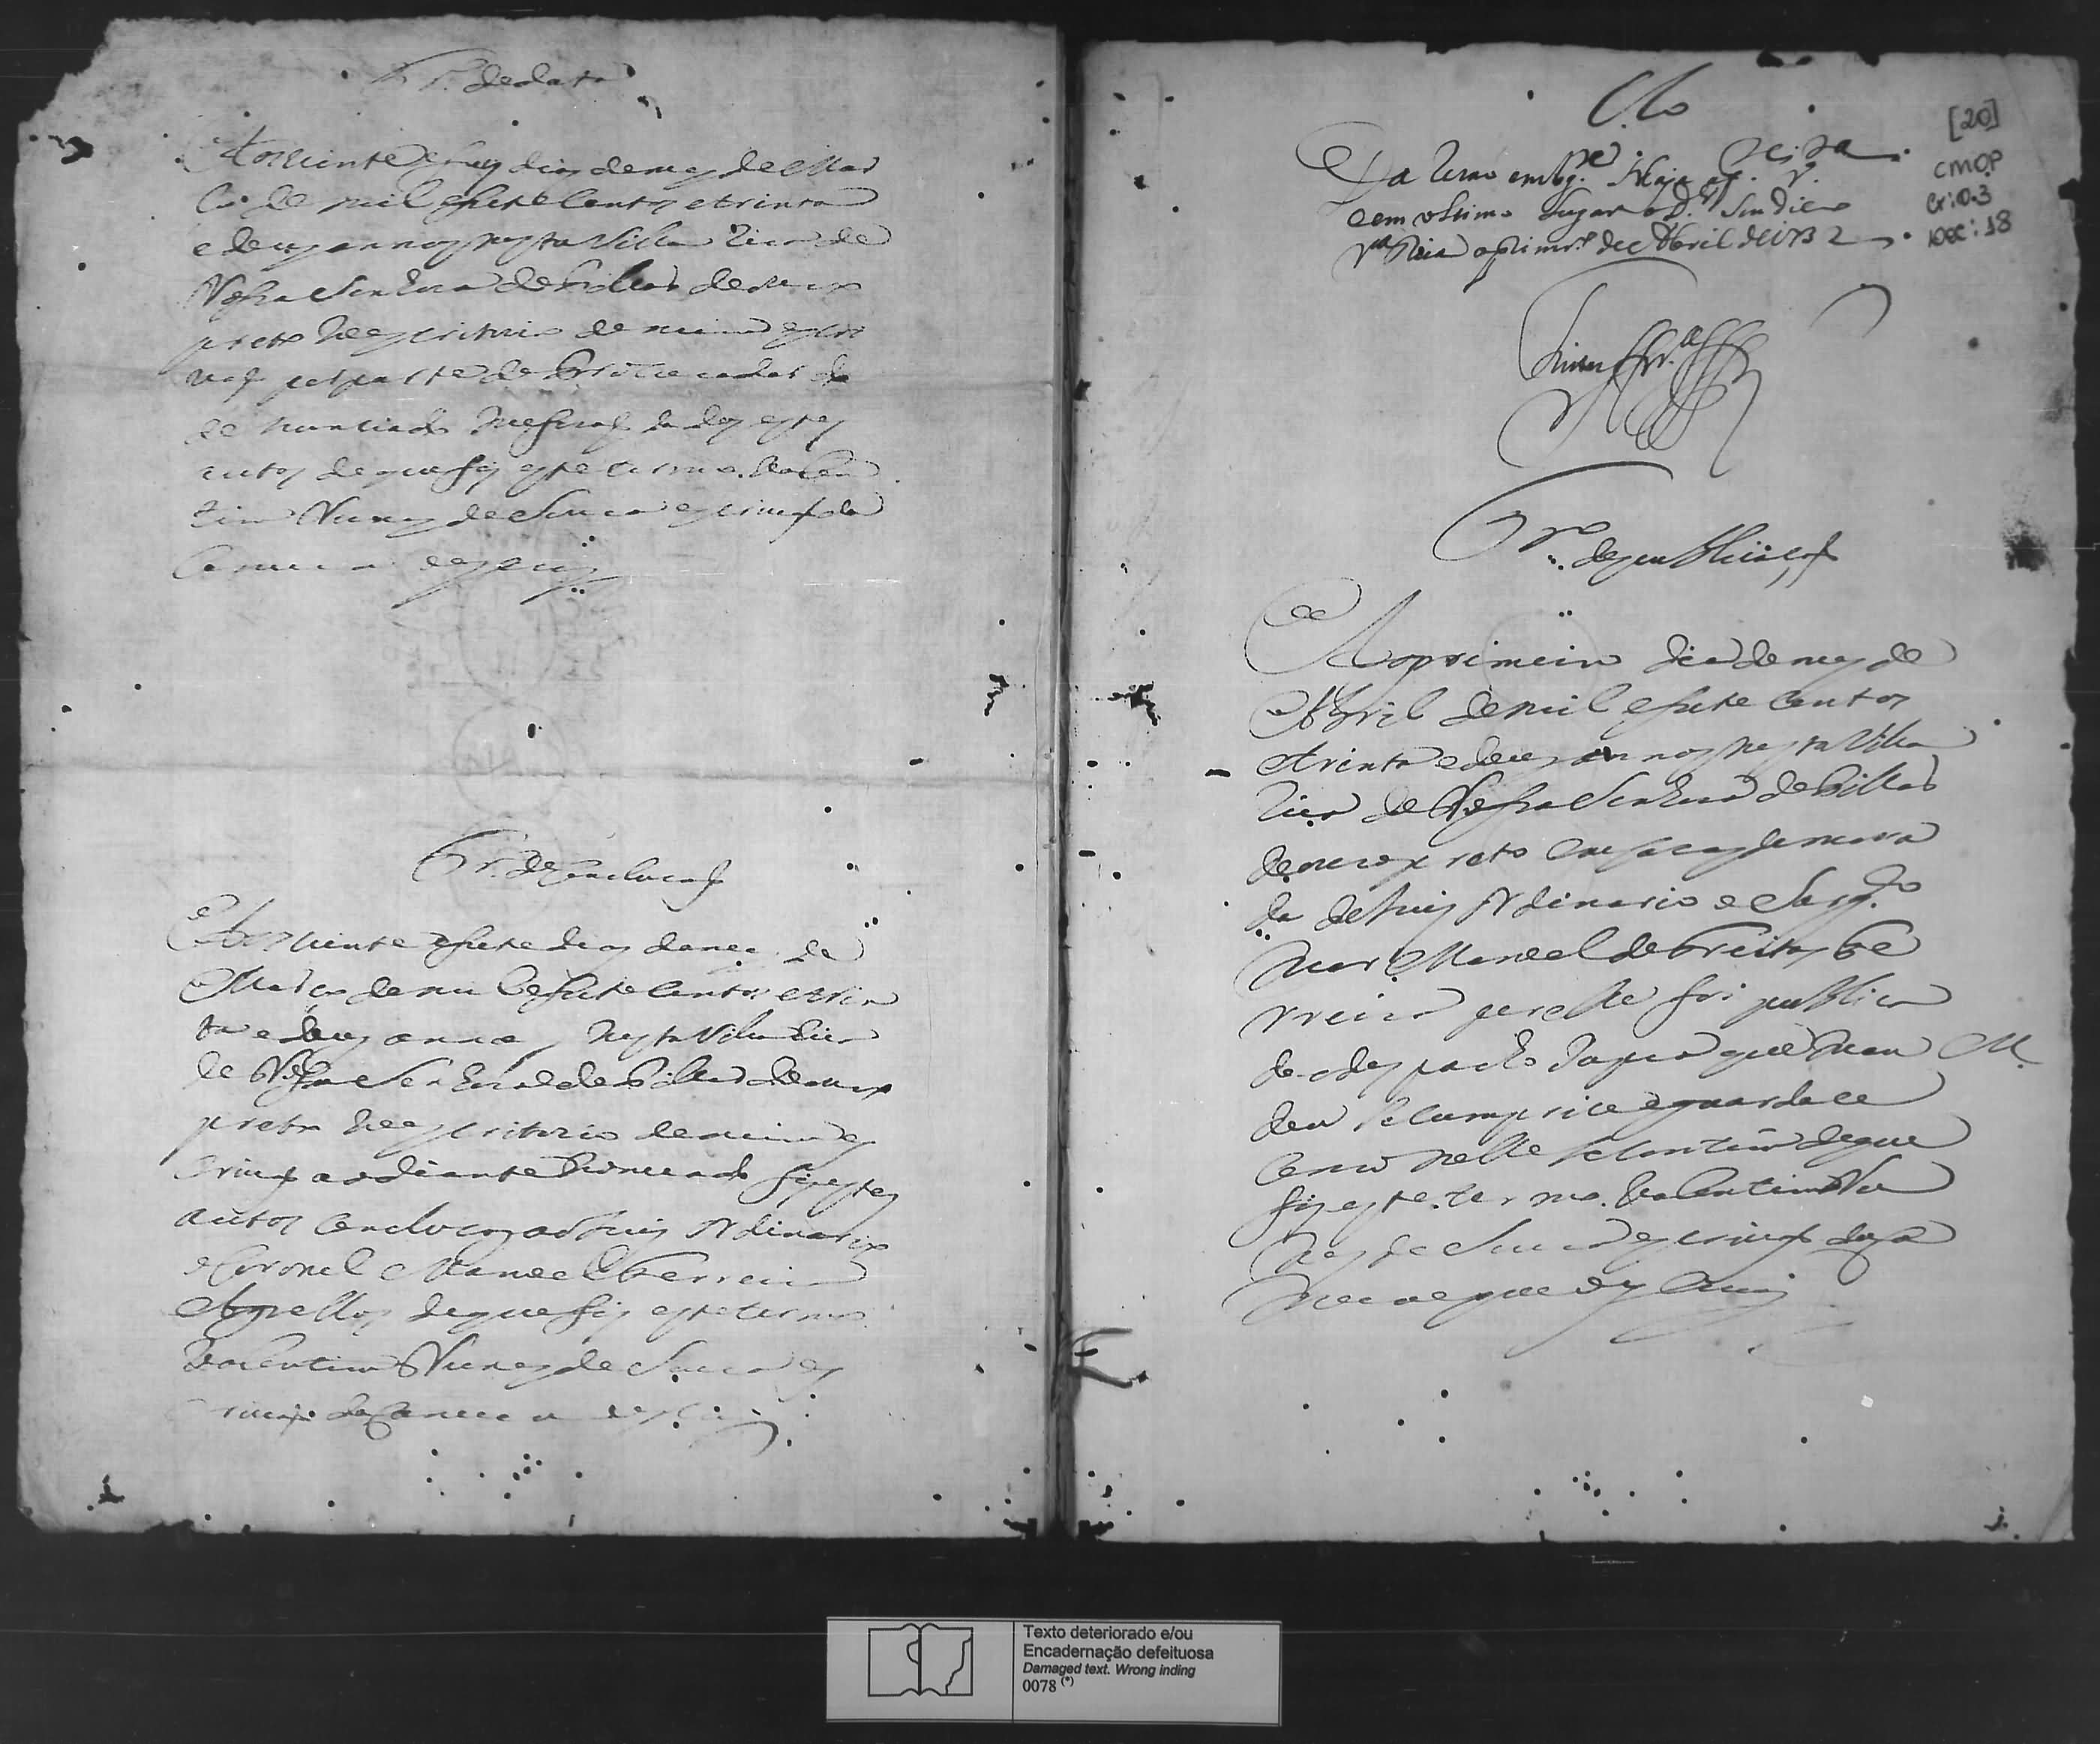 Tr.º de data
Aos vinte e seis dias do mes de Mar
ço de mil e sete centos e trinta
e dous annos nesta Villa Rica de
Nossa Senhora do Pillar do ouro
preto he escritorio de mim escri
vaõ por parte do
denunciado me foraõ dados estes
autos de que fis este termo. Valen
tim Nunes de Souza escrivaõ da
Camera escrevy
Tr.º de Concluzaõ
Aos vinte e sete dias do mes de
Março de mil e sete centos e trin
ta e dous annos nesta Villa Rica
de Nossa Senhora do Pillar do ouro
preto he escritorio de mim es
crivaõ ao diante nomeado fis estes
autos concluzos ao Juis Ordinario
o Coronel Manoel Ferreira
Agrellos de que fis este termo
Valentim Nunes de Souza es
crivaõ da Camera escrevy
Clo
[20]
CMOP
Cx: 03
DOC: 18
e em ultimo lugar o D.or Sindico
V.a Rica o prim.ro de Abril de 1732
Tr.º de publicaçaõ
Ao primeiro dia do mes de
Abril de mil e sete centos
e trinta e dous annos nesta Villa
Rica de Nossa Senhora do Pillar
do ouro preto em cazas de mora
da do Juis Ordinario o Sarg.to
mor Manoel de Freitas Fe
rreira por elle foi publica
do o despacho supra que man M
dou se comprice e guardace
como nelle se contem de que
fis este termo. Valentim Nu
nes de Souza escrivaõ da Ca
mera que o escrevy
Texto deteriorado e/ou
Encadernação defeituosa
Damaged text. Wrong inding
0078 (*)